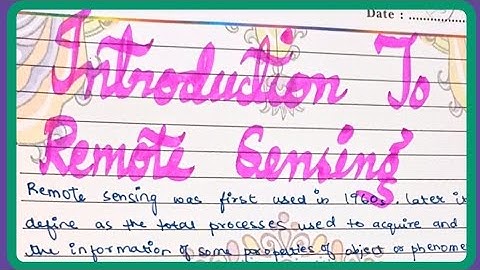 Date : ..................
Introduction To
Remote Sensing
Remote sensing was first used in 1960s. later it
define as the total processes used to acquire and
the information of some properties of object or phenome